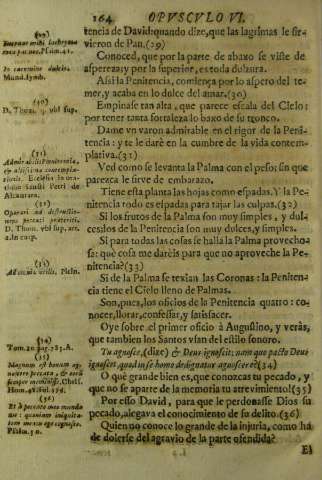 164 OPVSCVLO VI.
tencia de David: quando dize, que las lagrimas le sirvieron de Pan. (29)
Conoced, que por la parte de abaxo se viste de aspereza; y por la superior, es toda dulzura.
Assi la Penitencia, comiença por aspero del temer, y acaba en lo dulce del amar. (30)
Empinase tan alta, que parece escala del Cielo: por tener tanta fortaleza lo baxo de su tronco.
Dame vn varon admirable en el rigor de la Penitencia: y te le darè en la cumbre de la vida contemplativa. (31)
Ved como se levanta la Palma con el peso: sin que parezca le sirve de embarazo.
Tiene esta planta las hojas como espadas. Y la Penitencia todo es espadas para tajar las culpas. (32)
Si los frutos de la Palma son muy simples, y dulces: los de la Penitencia son muy dulces, y simples.
Si para todas las cosas se halla la Palma provechosa: què cosa me darèis para que no aproveche la Penitencia? (33)
Si de la Palma se texian las Coronas: la Penitencia tiene el Cielo lleno de Palmas.
Son, pues, los oficios de la Penitencia quatro: conocer, llorar, confessar, y satisfacer.
Oye sobre el primer oficio à Augustino, y veràs, que tambien los Santos vsan del estilo sonoro.
Tu agnosce, (dize) & Deus ignoscit; nam que pacto Deus ignoscet, quod in se homo dedignatur agnoscere? (34)
O què grande bien es, que conozcas tu pecado, y que no se aparte de la memoria tu atrevimiento! (35)
Por esso David, para que le perdonasse Dios su pecado, alegava el conocimiento de su delito. (36)
Quien no conoce lo grande de la injuria, como hà de dolerse del agravio de la parte ofendida?
El
(29)
Psalm. 41.
(30)
D. Thom. vbi sup.
(31)
Ecclesia in oratione sancti Petri de Alcantara.
(32)
D. Thom. vbi sup. art.
(33)
Plin.
(34)
Tom. 10. pag. 183. A.
(35)
Magnum est bonum agnoscere peccata, &
(36)
Psalm. 50.